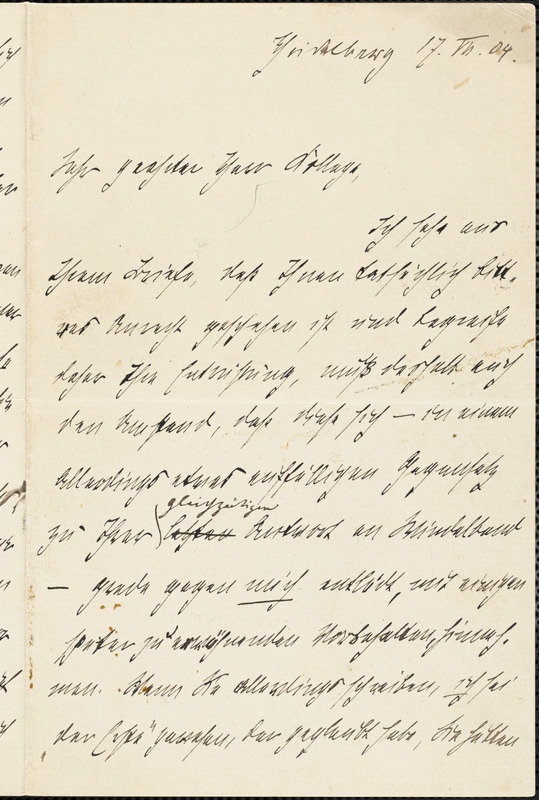 Heidelberg 17. VII. 04.
Sehr geehrter Herr Kollege,
Ich sehe aus
Ihrem Briefe, daß Ihnen tatsächlich bitt-
res Unrecht geschehen ist und begreife
daher Ihre Entrüstung, muß deshalb auch
den Umstand, daß diese sich – in einem
allerdings etwas auffälligen Gegensatz
gleichzeitigen
zu Ihrer Antwort an Windelband
– grade gegen mich entlädt, mit einigen
später zu erwähnenden Vorbehalten, hinneh-
men. Wenn Sie allerdings schreiben, ich sei
„der Erste" gewesen, der geglaubt habe, Sie hätten